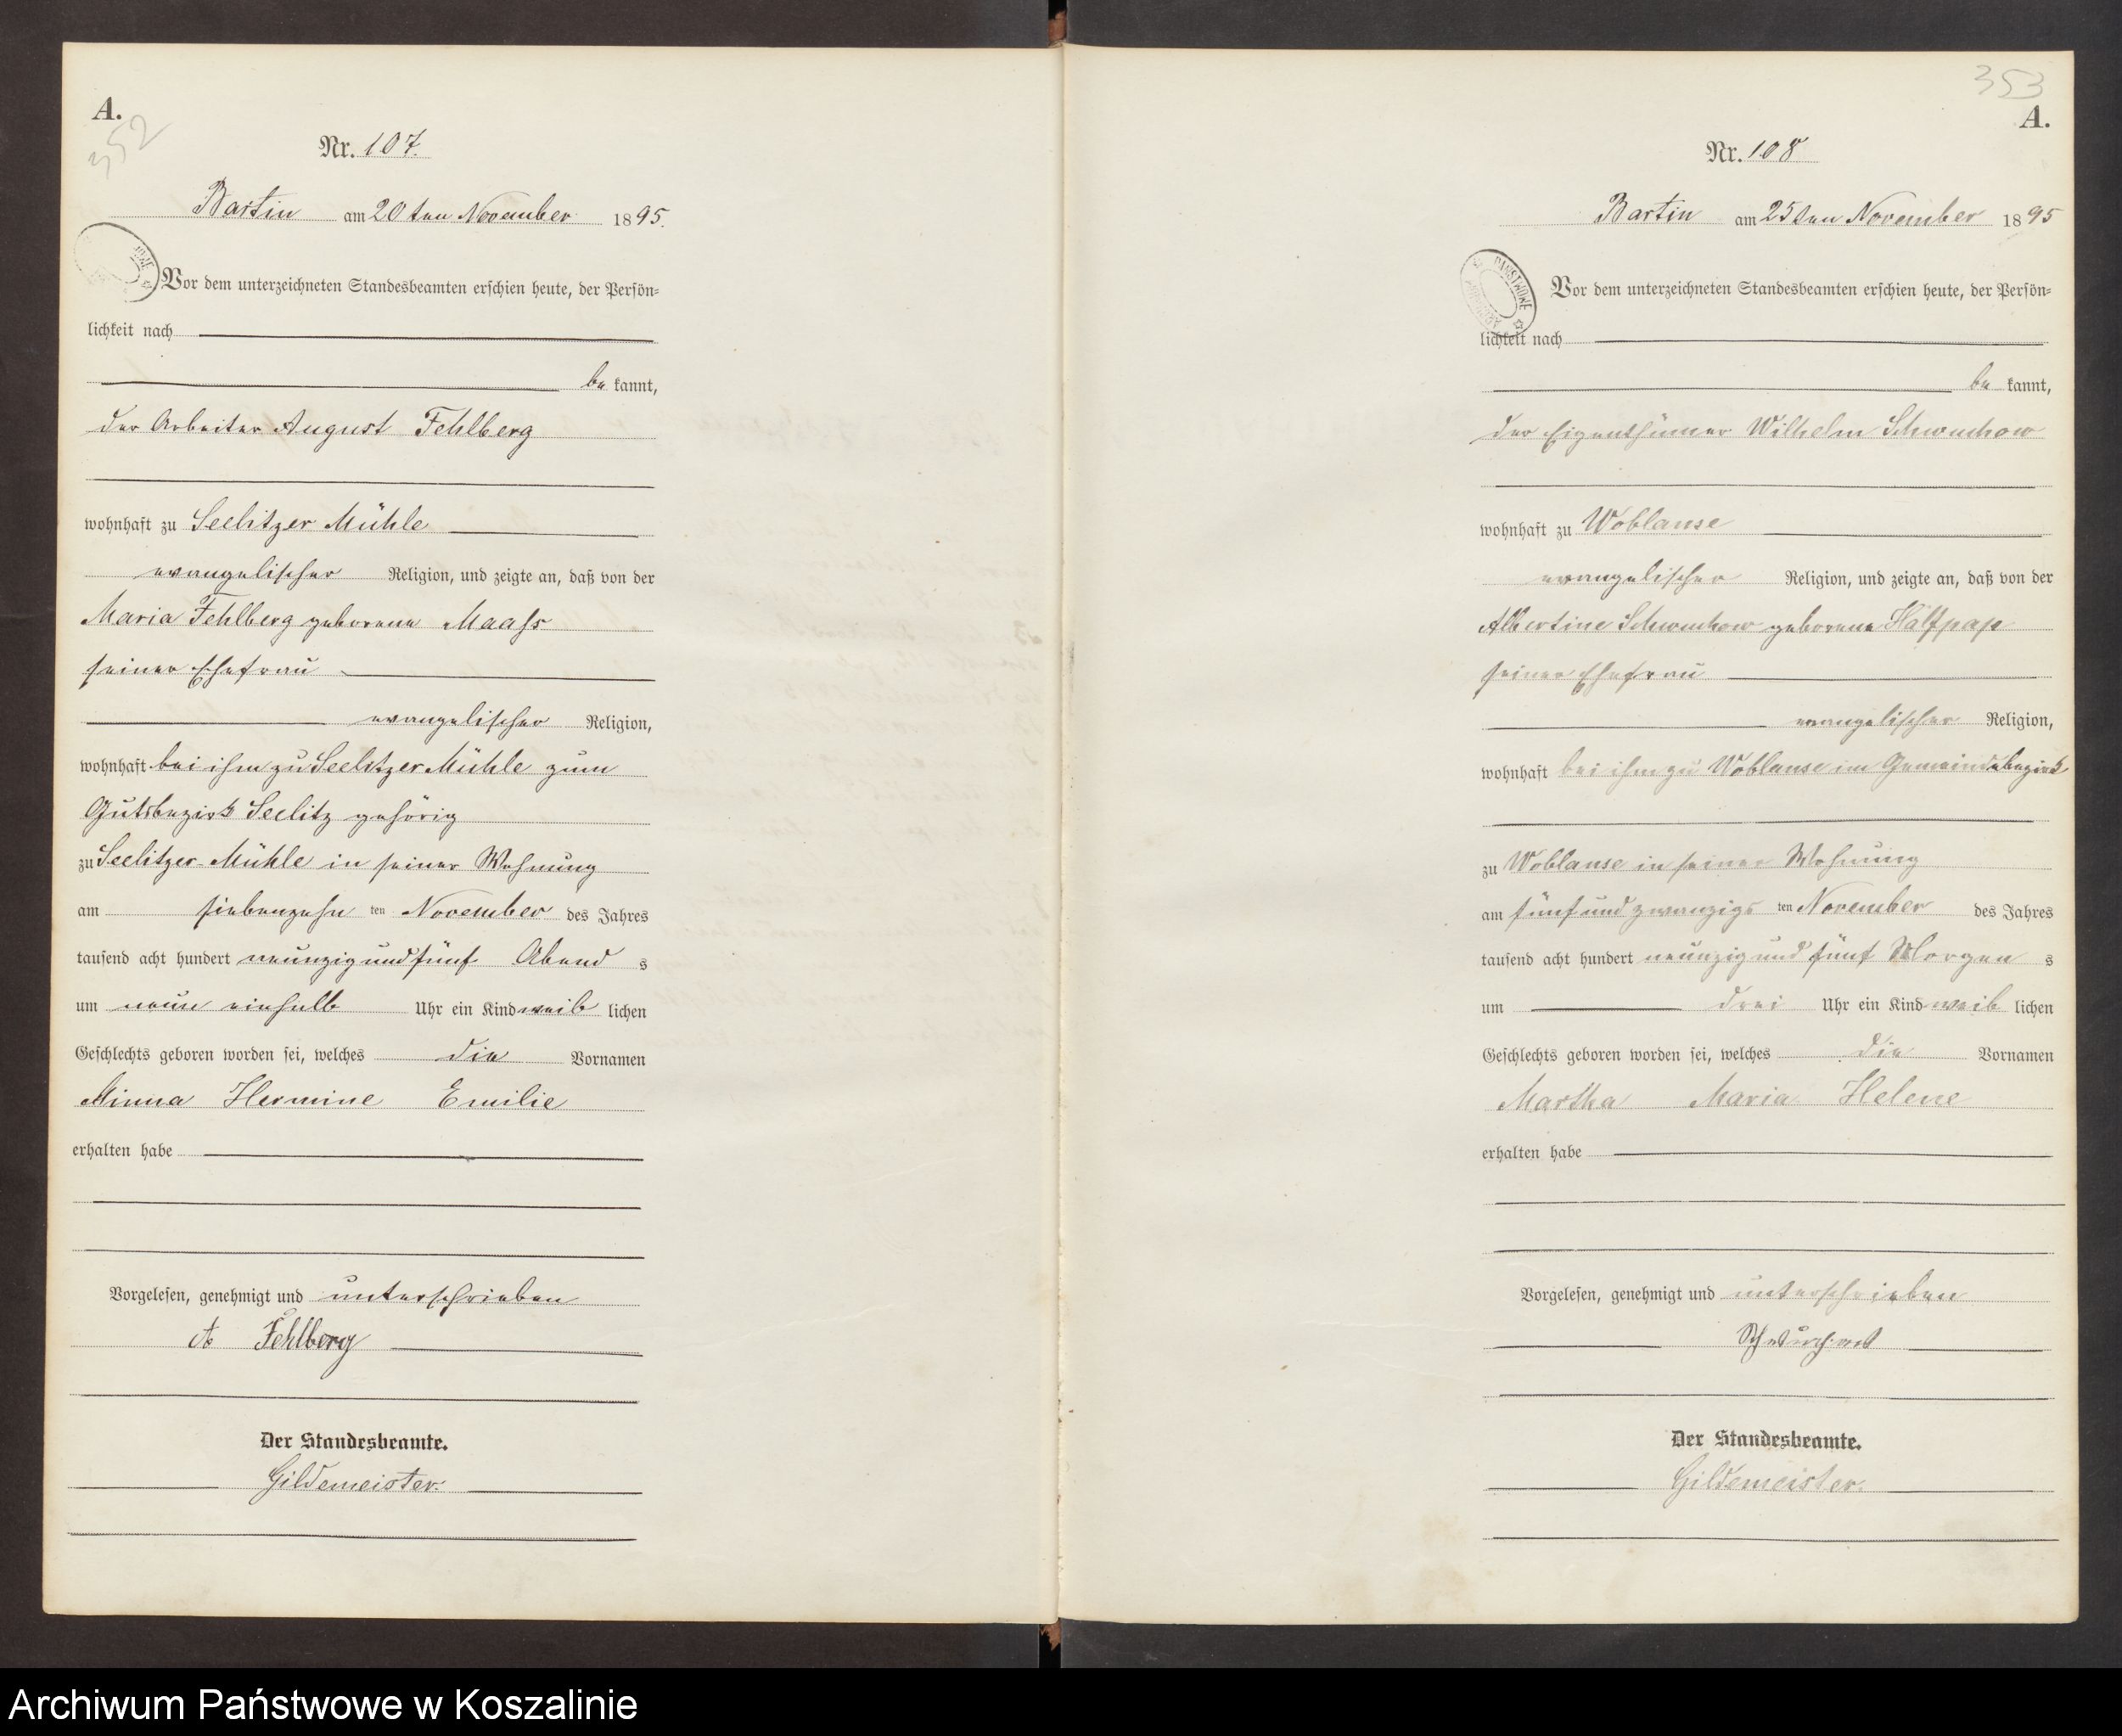 A.
352
Nr. 107.
Bartin am 20ten November 1895.
Vor dem unterzeichneten Standesbeamten erschien heute, der Persön=
lichkeit nach
be kannt,
der Arbeiter August Fehlberg
wohnhaft zu Seelitzer Mühle
evangelischer Religion, und zeigte an, daß von der
Maria Fehlberg geborene Maass
seiner Ehefrau
evangelischer Religion,
wohnhaft bei ihm zu Seelitzer Mühle zum
Gutsbezirk Seelitz gehörig
zu Seelitzer-Mühle in seiner Wohnung
am siebenzehn ten November des Jahres
tausend acht hundert neunzig und fünf Abend s
um neun einhalb Uhr ein Kind weib lichen
Geschlechts geboren worden sei, welches die Vornamen
Minna Hermine Emilie
erhalten habe
Vorgelesen, genehmigt und unterschrieben
A Fehlberg
Der Standesbeamte.
Gildemeister.
353
A.
Nr. 108
Bartin am 25ten November 1895
Vor dem unterzeichneten Standesbeamten erschien heute, der Persön=
lichkeit nach
be kannt,
der Eigenthümer Wilhelm Schwuchow
wohnhaft zu Woblanse
evangelischer Religion, und zeigte an, daß von der
Albertine Schwuchow geborene Halfpap
seiner Ehefrau
evangelischer Religion,
wohnhaft bei ihm zu Woblanse im Gemeindebezirk
zu Woblanse in seiner Wohnung
am fünf und zwanzigs ten November des Jahres
tausend acht hundert neunzig und fünf Morgen s
um drei Uhr ein Kind weib lichen
Geschlechts geboren worden sei, welches die Vornamen
Martha Maria Helene
erhalten habe
Vorgelesen, genehmigt und unterschrieben
Der Standesbeamte.
Gildemeister.
Archiwum Państwowe w Koszalinie